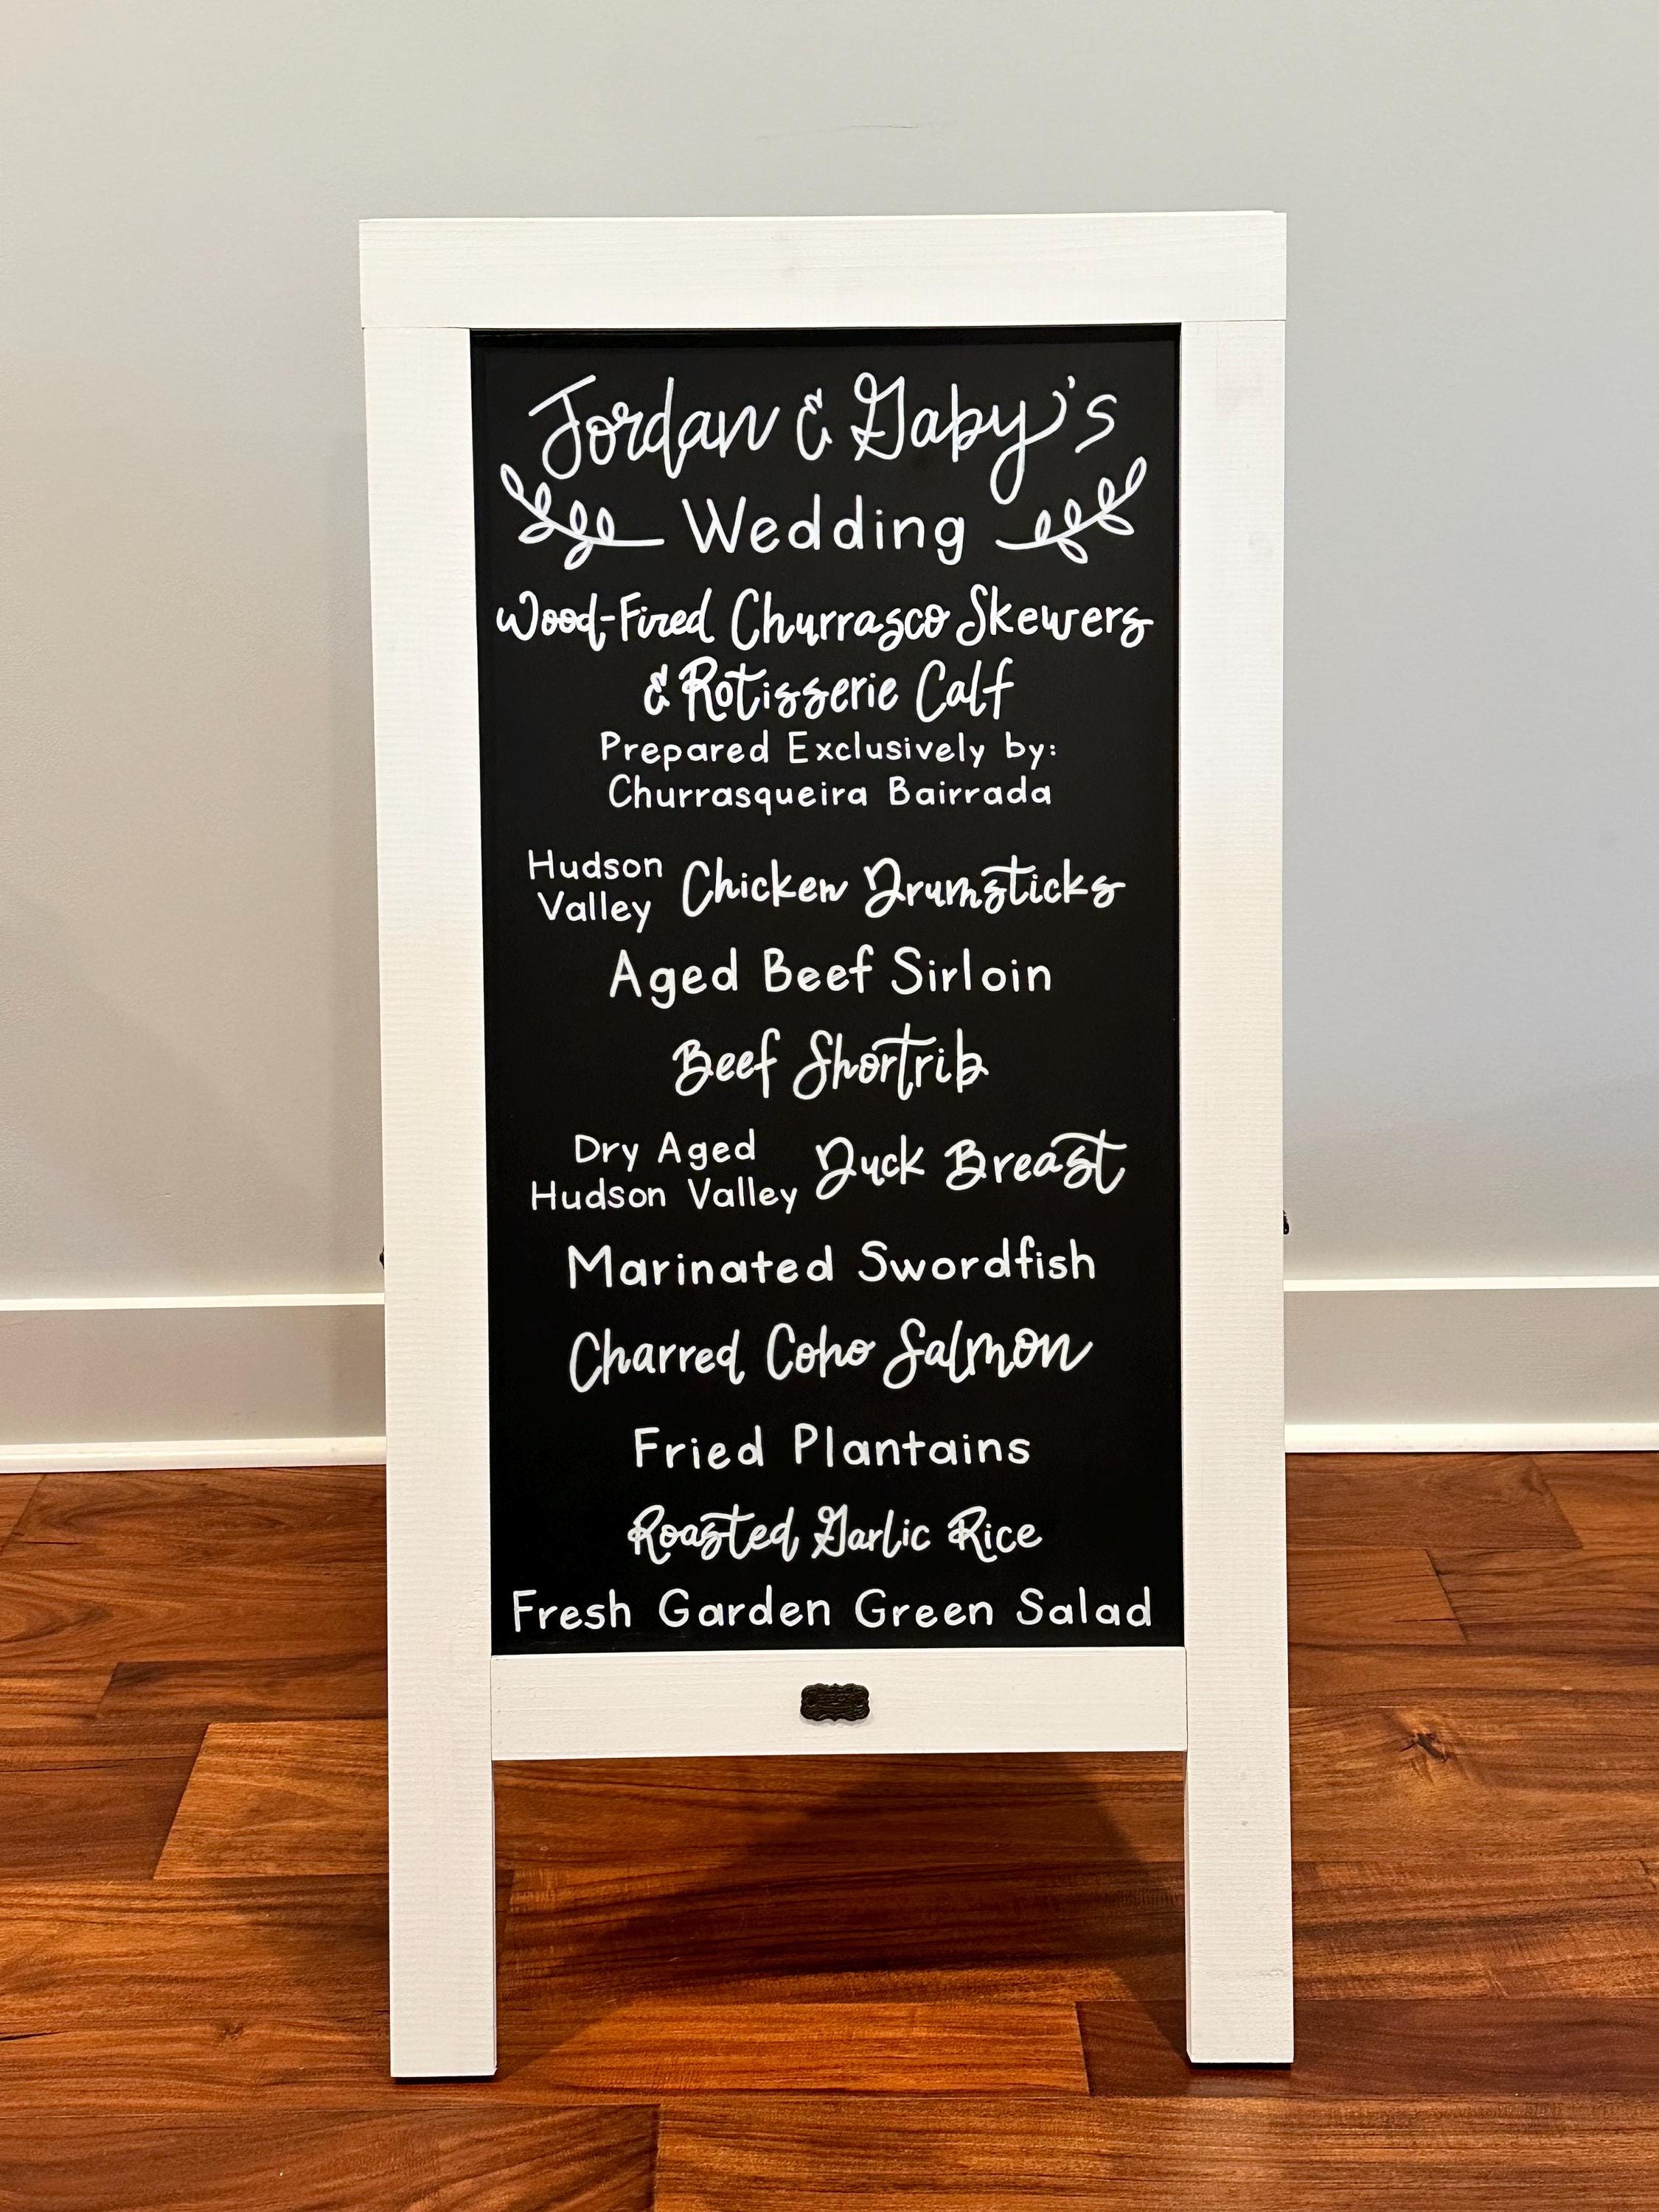 Jordan & Gaby's
Wedding
Wood-Fired Churrasco Skewers
& Rotisserie Calf
Prepared Exclusively by:
Churrasqueira Bairrada
Hudson
Valley Chicken Drumsticks
Aged Beef Sirloin
Beef Shortrib
Dry Aged
Hudson Valley Duck Breast
Marinated Swordfish
Charred Coho Salmon
Fried Plantains
Roasted Garlic Rice
Fresh Garden Green Salad